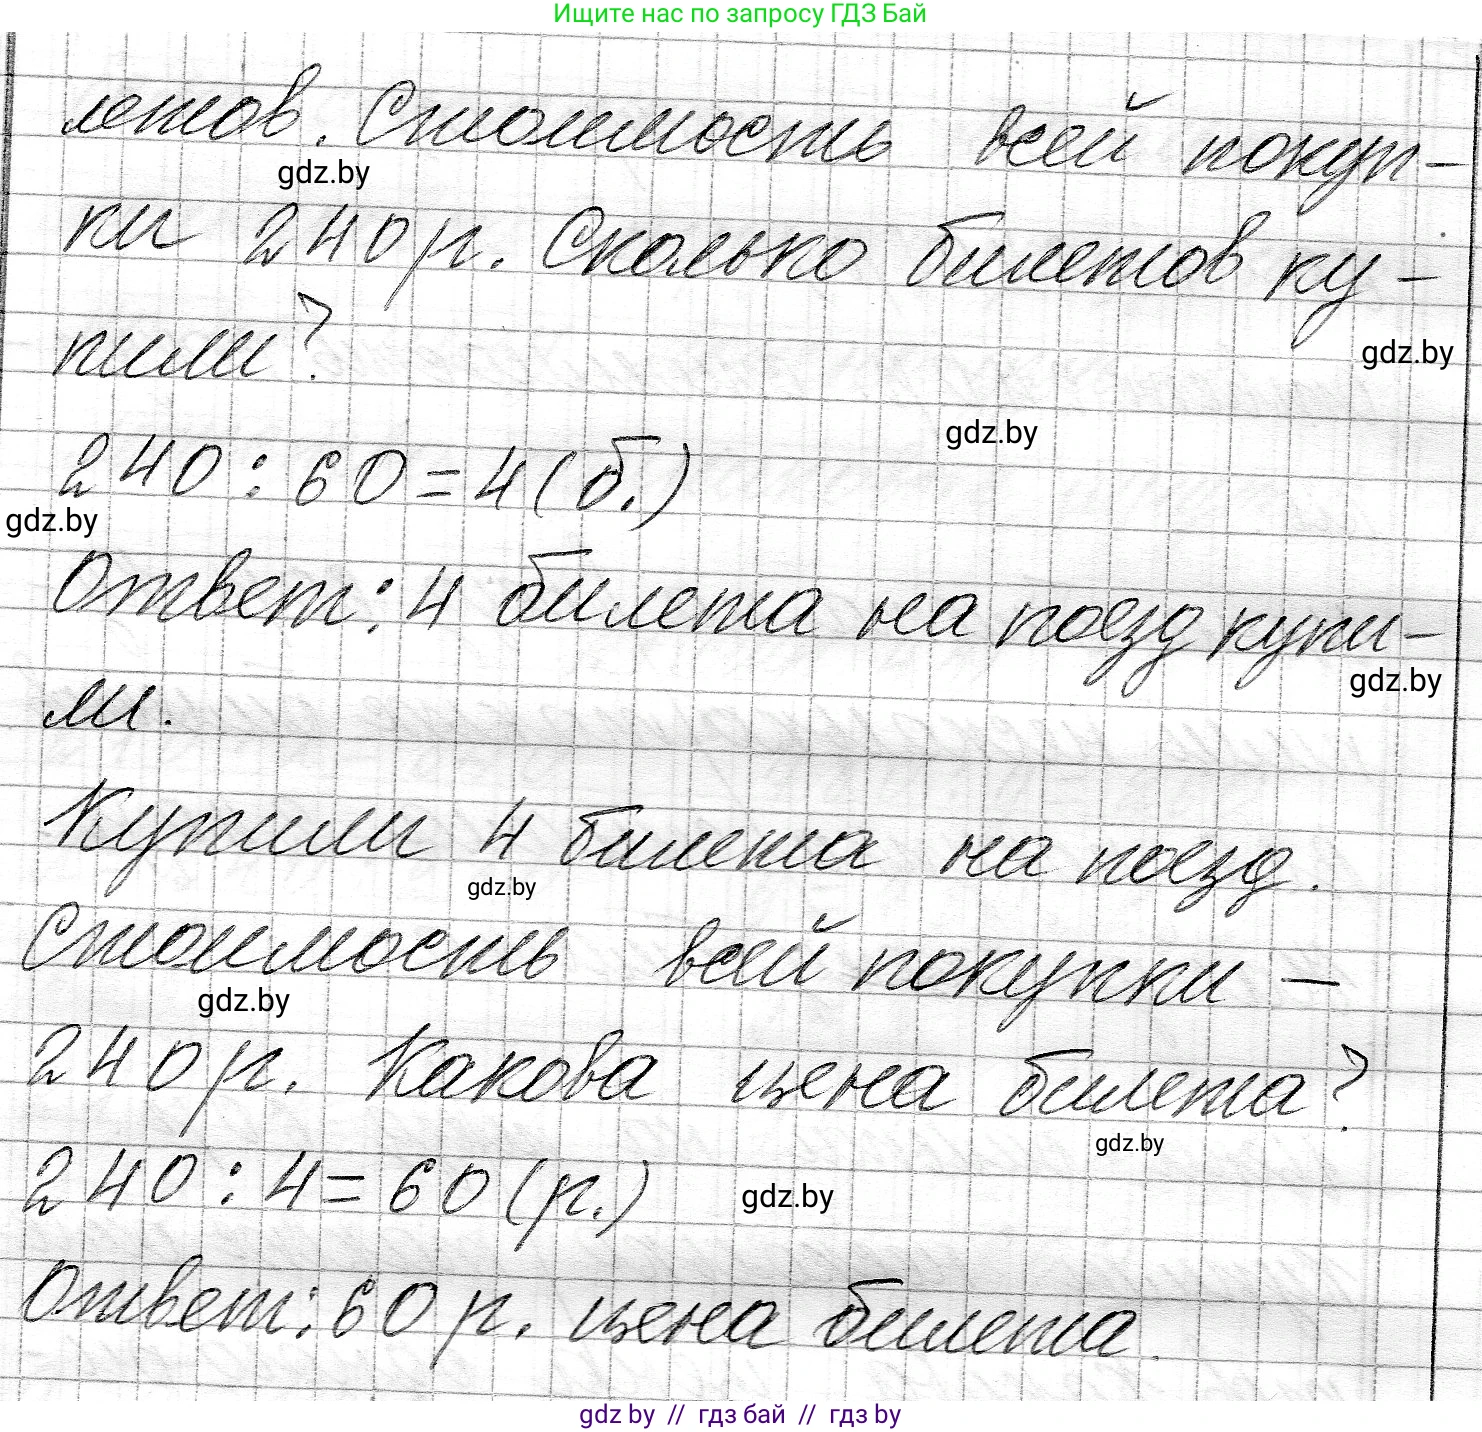 Ищите нас по запросу ГДЗ Бай
летов. Стоимость всей покуп-
gdz.by
ки 240 р. Сколько билетов ку-
пили?
gdz.by
gdz.by
240 : 60 = 4 (б.)
gdz.by
Ответ: 4 билета на поезд купи-
gdz.by
ли.
Купили 4 билета на поезд.
gdz.by
Стоимость всей покупки –
gdz.by
240 р. Какова цена билета?
gdz.by
240 : 4 = 60 (р.)
gdz.by
Ответ: 60 р. цена билета.
gdz by // гдз бай // гдз by